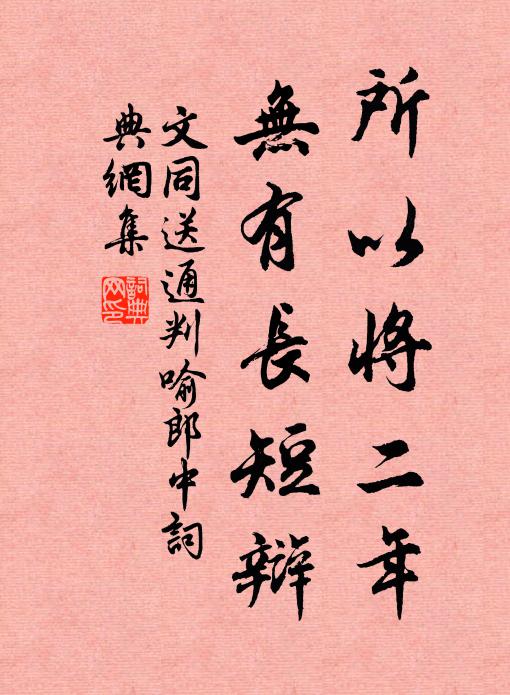 所以將二年
無有長短辯
文同送通判喻郎中詞
典網集
詞典網印